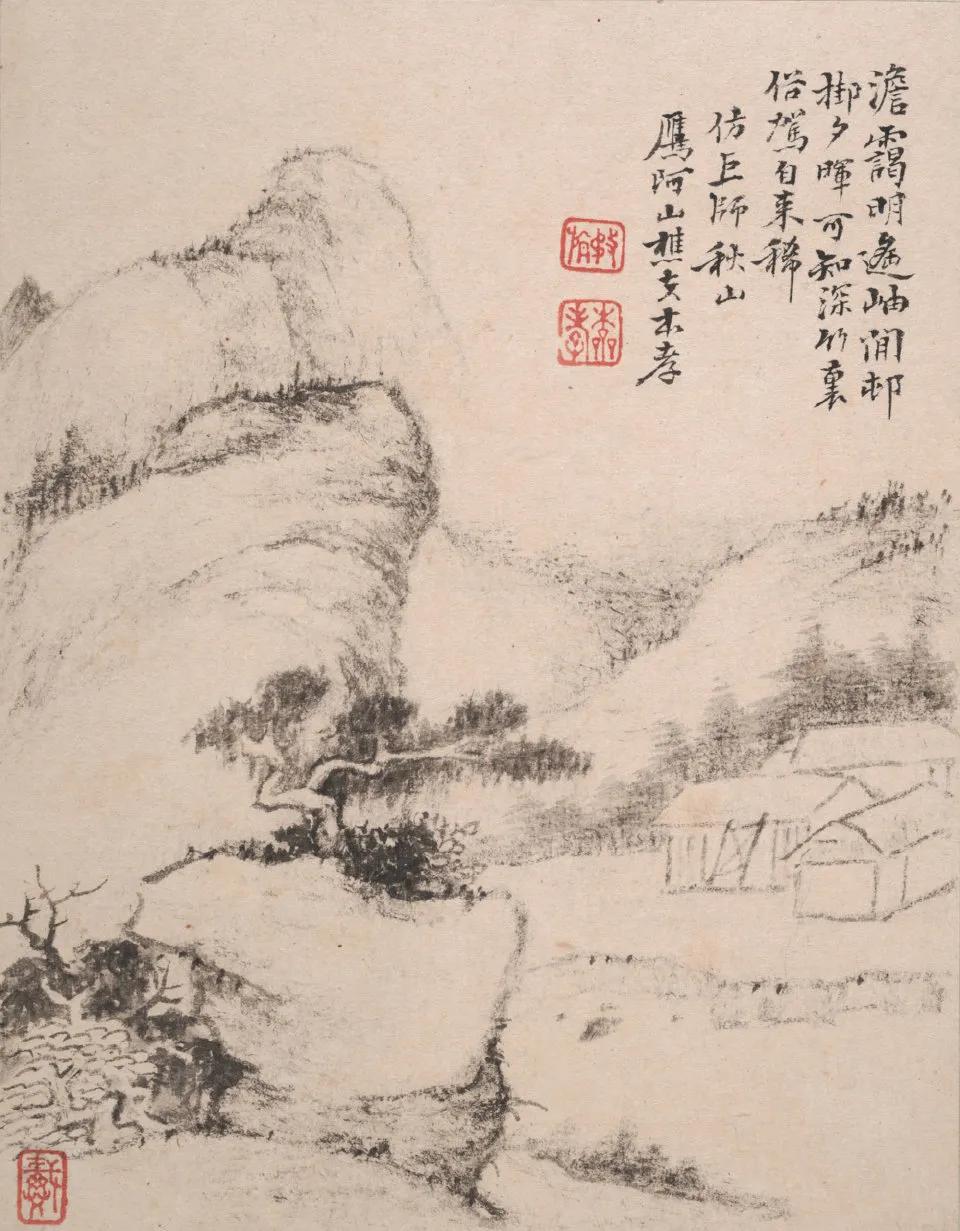 澹靄明遙岫閒邨
掛夕暉可知深竹裏
俗駕自来稀
仿巨師秋山
鷹阿山樵本孝